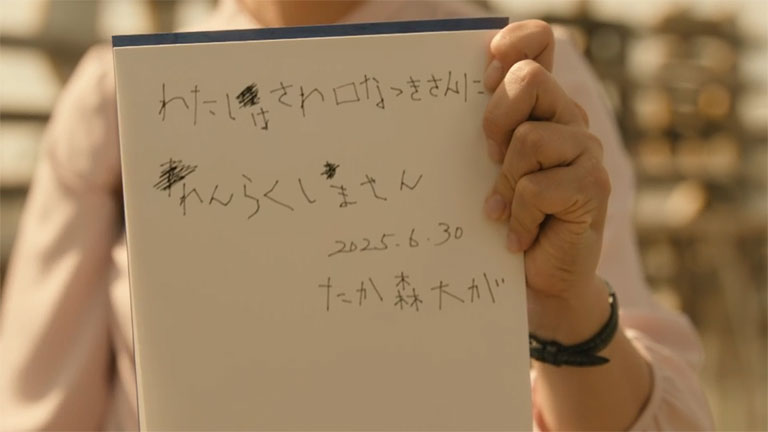 わたしはさわ口なつきさんに
れんらくしません
2025.6.30
たか森大が